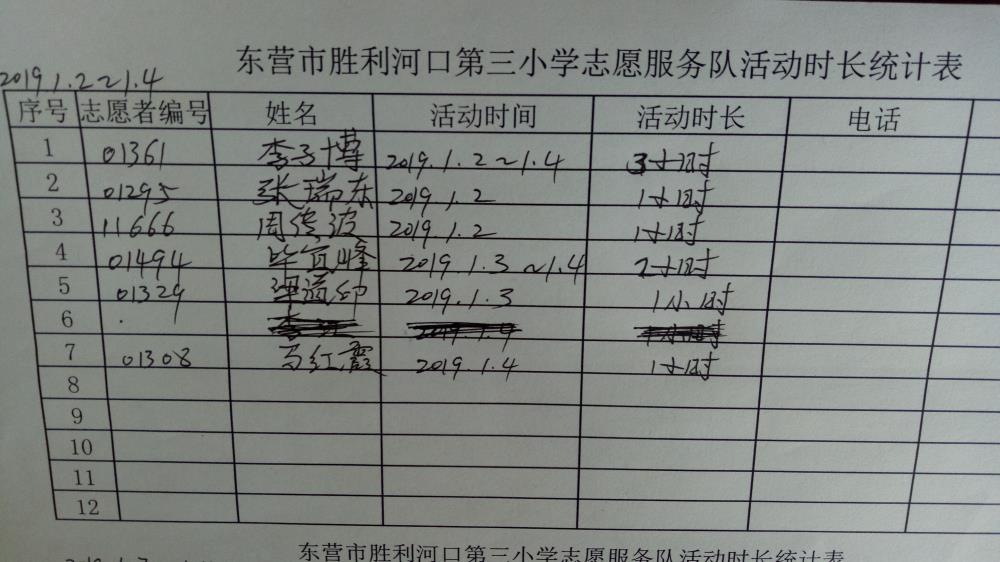 东营市胜利河口第三小学志愿服务队活动时长统计表
2019.1.2~1.4
序号 志愿者编号 姓名 活动时间 活动时长 电话
1 01361 李子博 2019.1.2~1.4 3小时
2 01295 张瑞东 2019.1.2 1小时
3 11666 周德波 2019.1.2 1小时
4 01494 2019.1.3~1.4 2小时
5 01329 2019.1.3 1小时
6
7 01308 马红霞 2019.1.4 1小时
8
9
10
11
12
东营市胜利河口第三小学志愿服务队活动时长统计表